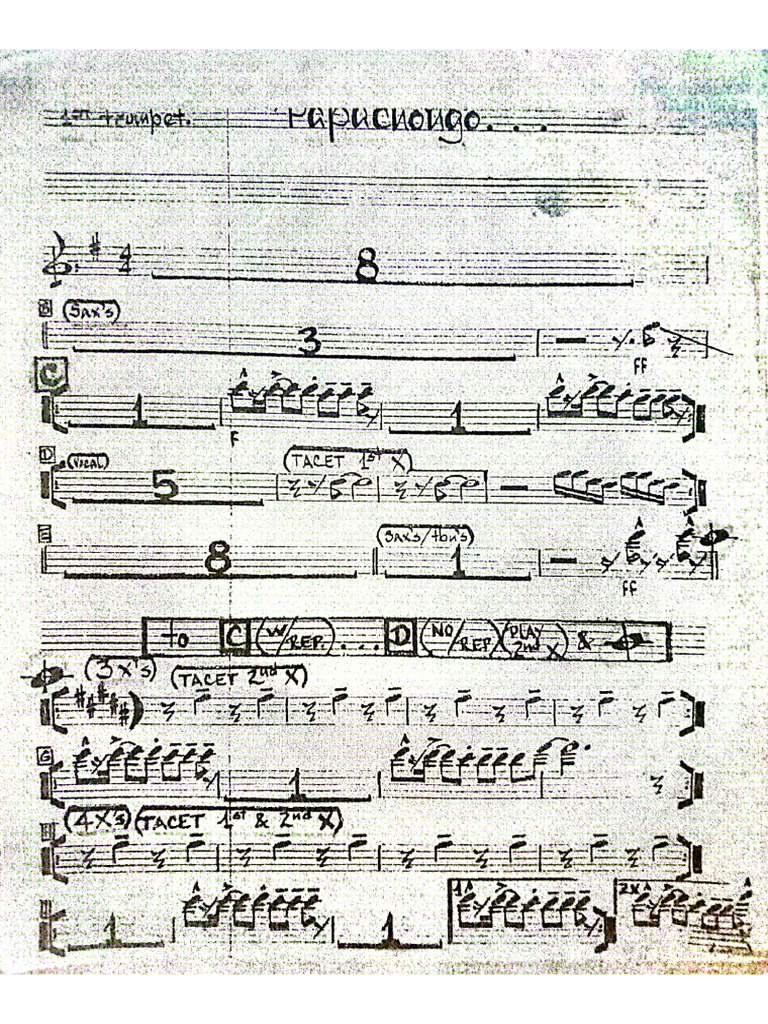 1st Trumpet. Papachongo...
4/4 8
B (SAX'S)
3
ff
C
1 1
F
D (VOCAL) (TACET 1st X)
5
E (SAX'S/tbn's)
8 1
ff
to C (W/REP.) ... D (NO/REP.) (PLAY 2nd X) &
(3X's) (TACET 2nd X)
G
1
H (4X's) (TACET 1st & 2nd X)
I 1x 2x
1 1